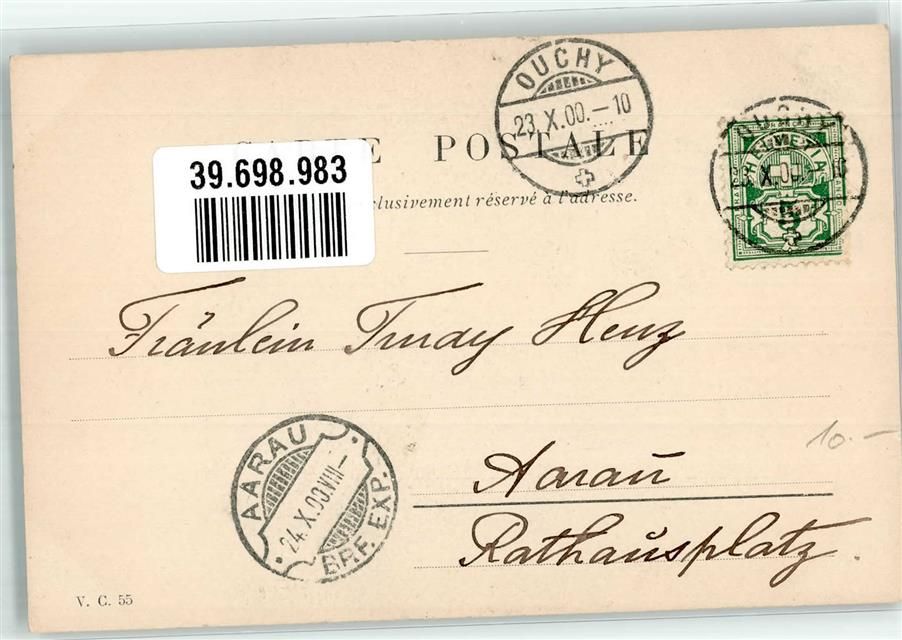 OUCHY
23.X.00.–10
CARTE POSTALE
39.698.983
exclusivement réservé à l'adresse.
HELVETIA
5
Fräulein Trudy Henz
AARAU
24.X.00.VIII–
BRF. EXP.
10.–
Aarau
Rathausplatz.
V. C. 55